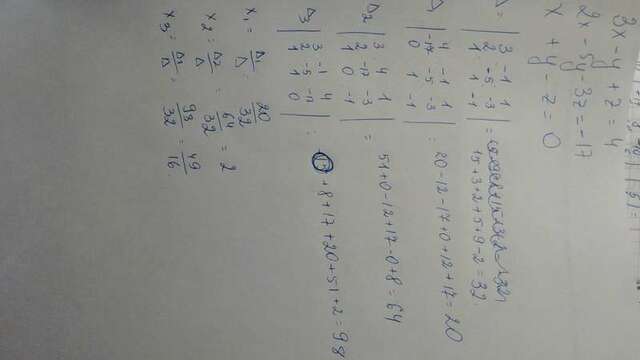 3x - y + z = 4
2x - 5y - 3z = -17
x + y - z = 0
Δ = | 3 -1 1 |
| 2 -5 -3 | = 15+3+2+5+9-2=32
| 1 1 -1 |
Δ
| 4 -1 1 |
| -17 -5 -3 | = 20-12-17+0+12+17=20
| 0 1 -1 |
Δ2
| 3 4 1 |
| 2 -17 -3 | = 51+0-12+17-0+8=64
| 1 0 -1 |
Δ3
| 3 -1 4 |
| 2 -5 -17 | = +8+17+20+51+2=98
| 1 1 0 |
x1 = Δ1/Δ = 20/32
x2 = Δ2/Δ = 64/32 = 2
x3 = Δ3/Δ = 98/32 = 49/16